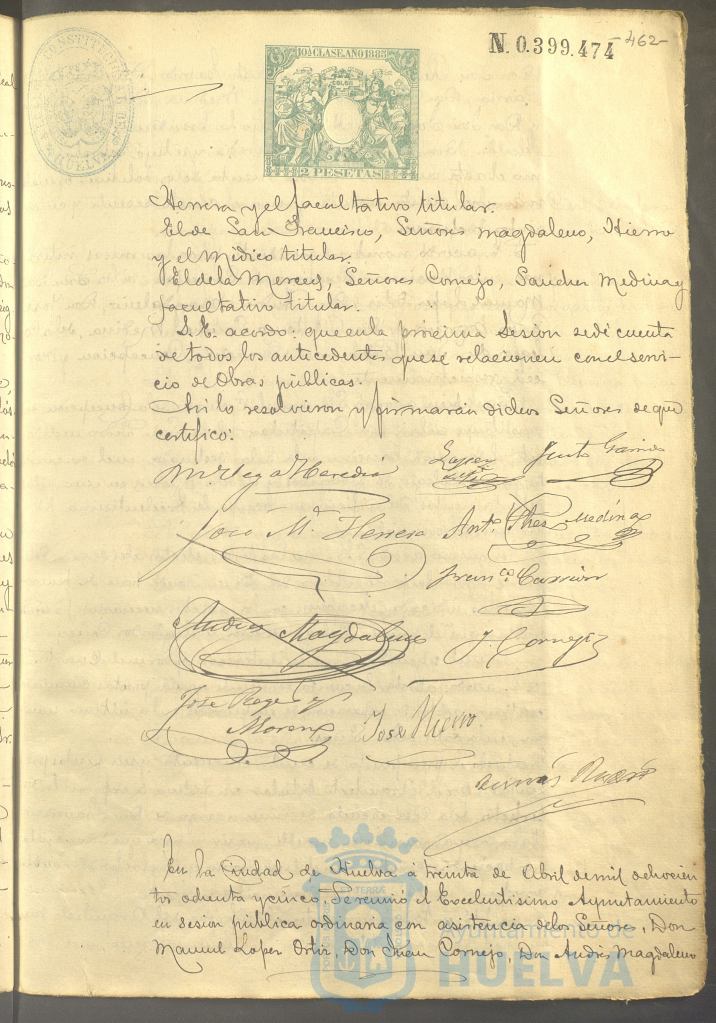 N. 0.399.474
462
10ª CLASE. AÑO 1885
2 PESETAS
HUELVA
Herrera y el facultativo titular.
El de San Francisco, Señores Magdaleno, Hierro
y el Médico titular.
El de la Merced, Señores Cornejo, Sanchez Medina y
facultativo titular.
S. E. acordó: que en la próxima Sesion se dé cuenta
de todos los antecedentes que se relacionen con el servi-
cio de Obras públicas.
Asi lo resolvieron y firmarán dichos Señores de que
certifico:
M. Vega Heredia
Lopez
Justo Garrido
José M.ª Herrera
Ant.º Shez Medina
Fran.co Carrion
Andres Magdaleno
J. Cornejo
José Roge y
Moreno
José Hierro.
En la Ciudad de Huelva á treinta de Abril de mil ochocien
tos ochenta y cinco, se reunió el Excelentisimo Ayuntamiento
en sesion pública ordinaria con asistencia de los Señores, Don
Manuel Lopez Ortiz, Don Juan Cornejo, Don Andrés Magdaleno
Ayuntamiento de
HUELVA